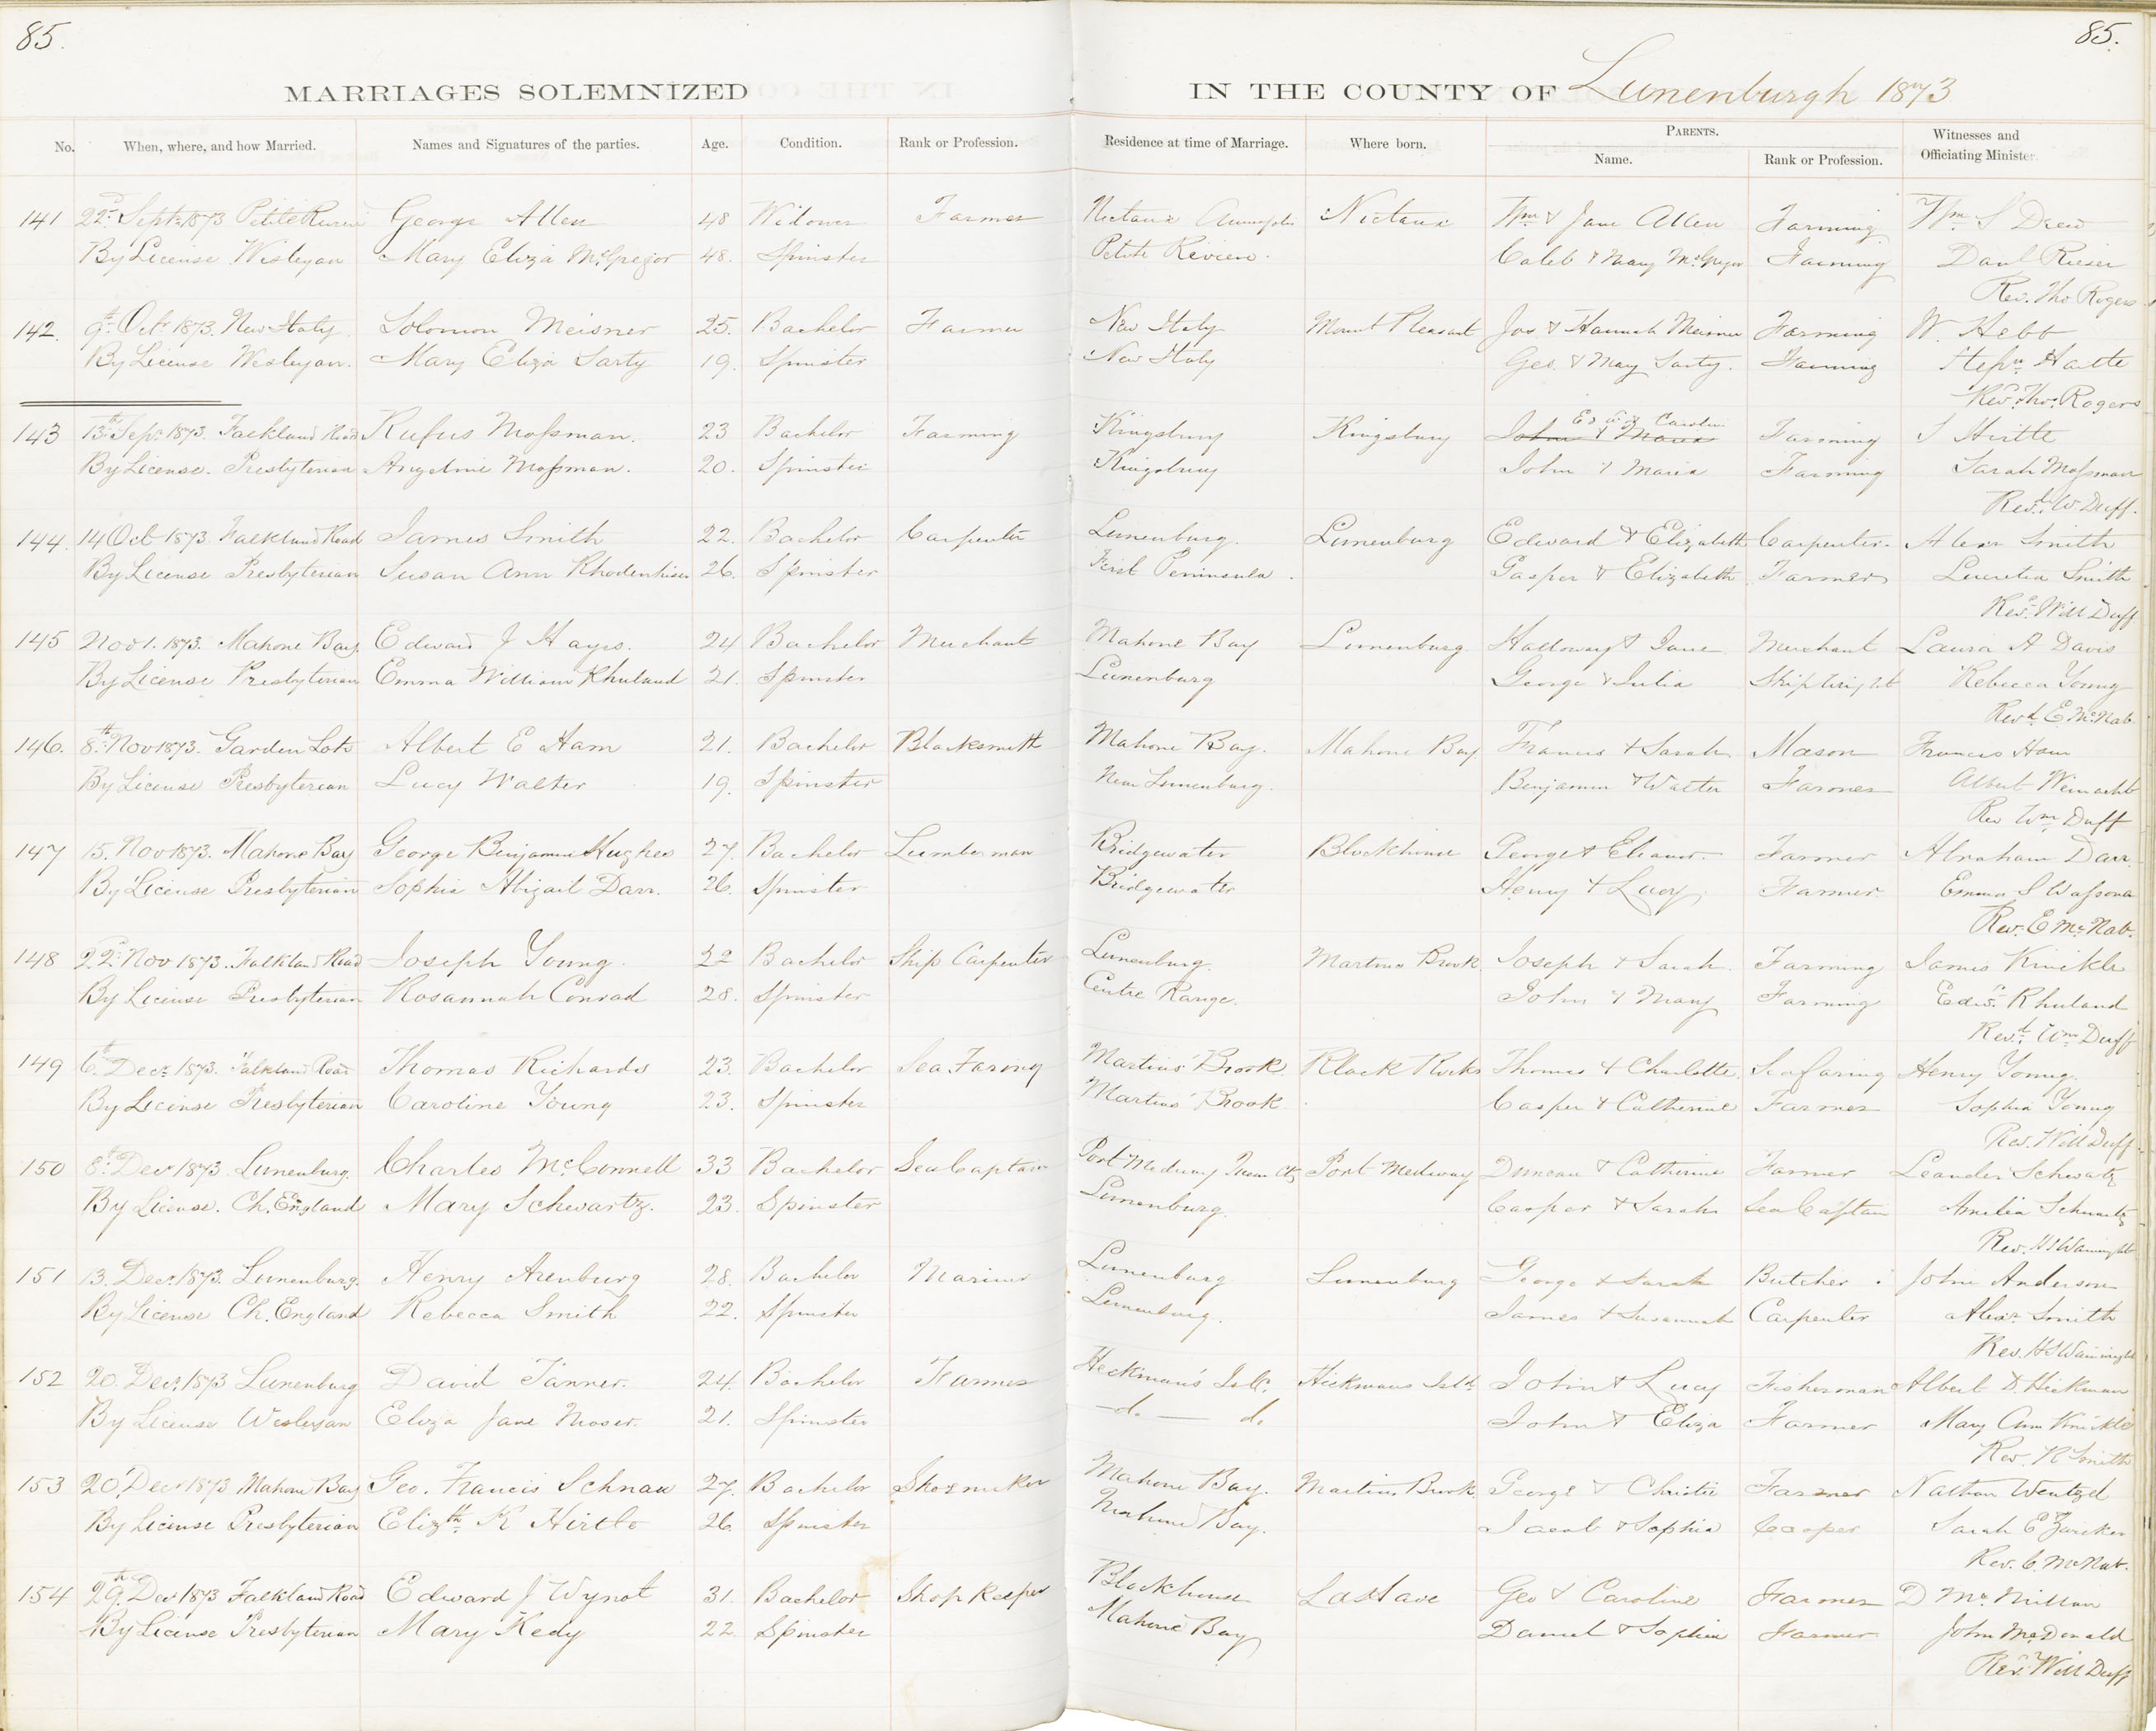 85.
85.
MARRIAGES SOLEMNIZED IN THE COUNTY OF Lunenburgh 1873
No. When, where, and how Married. Names and Signatures of the parties. Age. Condition. Rank or Profession. Residence at time of Marriage. Where born. PARENTS. Name. Rank or Profession. Witnesses and Officiating Minister.
141 22d Sept 1873 Petite Riviere George Allen 48 Widower Farmer Nictaux Annapolis Nictaux Wm & Jane Allen Farming Wm S Drew
By License Wesleyan Mary Eliza McGregor 48. Spinster Petite Riviere. Caleb & Mary McGregor Farming Danl Rieser
Rev. Tho Rogers
142. 9th Octr 1873. New Italy Solomon Meisner 25. Bachelor Farmer New Italy Mount Pleasant Jos & Hannah Meisner Farming W. Hebb
By License Wesleyan. Mary Eliza Sarty 19. Spinster New Italy Geo. & Mary Sarty. Farming Stepn
Revd Thos Rogers
143 13th Sepr 1873. Falkland Road Rufus Mossman. 23 Bachelor Farming Kingsbury Kingsbury John & Maria Edwd & Caroline Farming S Hirtle
By License. Presbyterian Angeline Mossman. 20. Spinster Kingsbury John & Maria Farming Sarah Mossman
Revd W Duff.
144. 14 Oct 1873. Falkland Road James Smith 22. Bachelor Carpenter Lunenburg. Lunenburg Edward & Elizabeth Carpenter. Alexr Smith
By License Presbyterian Susan Ann Rhodenhiser 26. Spinster First Peninsula. Gasper & Elizabeth Farmer Lucretia Smith
Revd Will Duff
145 Nov 1. 1873. Mahone Bay Edward J Hayes. 24 Bachelor Merchant Mahone Bay Lunenburg Halloway & Jane Merchant Laura A Davis
By License Presbyterian Emma William Rhuland 21. Spinster Lunenburg George & Julia Shipwright Rebecca Young
Revd E McNab.
146. 8th Nov 1873. Garden Lots Albert E Ham 21. Bachelor Blacksmith Mahone Bay. Mahone Bay Francis & Sarah Mason Francis Ham
By License Presbyterian Lucy Walter 19. Spinster Near Lunenburg. Benjamin & Walter Farmer Albert Weinacht
Rev Wm Duff
147 15. Nov 1873. Mahone Bay George Benjamin Hughes 27. Bachelor Lumberman Bridgewater Blockhouse George & Eleanor. Farmer Abraham Darr.
By License Presbyterian Sophia Abigail Darr. 26. Spinster Bridgewater Henry & Lucy Farmer. Emma S
Rev. E McNab.
148 22d Nov 1873. Falkland Road Joseph Young. 22 Bachelor Ship Carpenter Lunenburg. Martins Brook Joseph & Sarah Farming James Knickle
By License Presbyterian Rosannah Conrad 28. Spinster Centre Range. John & Mary Farming Edwd Rhuland
Revd Wm Duff
149 6th Decr 1873. Falkland Road Thomas Richards 23. Bachelor Sea Faring Martins' Brook. Black Rocks Thomas & Charlotte. Seafaring Henry Young.
By License Presbyterian Caroline Young 23. Spinster Martins' Brook Casper & Catherine Farmer Sophia Young
Rev. Will Duff
150 8th Decr 1873. Lunenburg. Charles McConnell 33 Bachelor Sea Captain Port Medway Queen Cty Port Medway Duncan & Catherine Farmer Leander Schwartz
By License. Ch. England Mary Schwartz. 23. Spinster Lunenburg. Casper & Sarah Sea Captain Amelia Schwartz
Rev. H S Wainwright
151 13. Decr 1873. Lunenburg. Henry Arenburg 28. Bachelor Mariner Lunenburg Lunenburg George & Sarah Butcher John Anderson
By License Ch. England Rebecca Smith 22. Spinster Lunenburg. James & Susannah Carpenter Alexr Smith
Rev. H S Wainwright
152 20. Decr 1873 Lunenburg David Tanner. 24. Bachelor Farmer Heckman's Isld. Hickmans Isld. John & Lucy Fisherman Albert D. Hickman
By License Wesleyan Eliza Jane Moser. 21. Spinster —d.— d. John & Eliza Farmer Mary Ann Knickle
Rev. R Smith
153 20 Decr 1873 Mahone Bay Geo. Francis Schnau 27. Bachelor Shoemaker Mahone Bay. Martins Brook. George & Christie Farmer Nathan Wentzel
By License Presbyterian Elizth R Hirtle 26. Spinster Mahone Bay. Jacob & Sophia Cooper Sarah E Zwicker
Rev. E. McNab.
154 29th Decr 1873 Falkland Road Edward J Wynot 31. Bachelor Shop Keeper Blockhouse LaHave Geo & Caroline Farmer D McMillan
By License Presbyterian Mary Kedy 22. Spinster Mahone Bay Daniel & Sophia Farmer John McDonald
Revd Will Duff